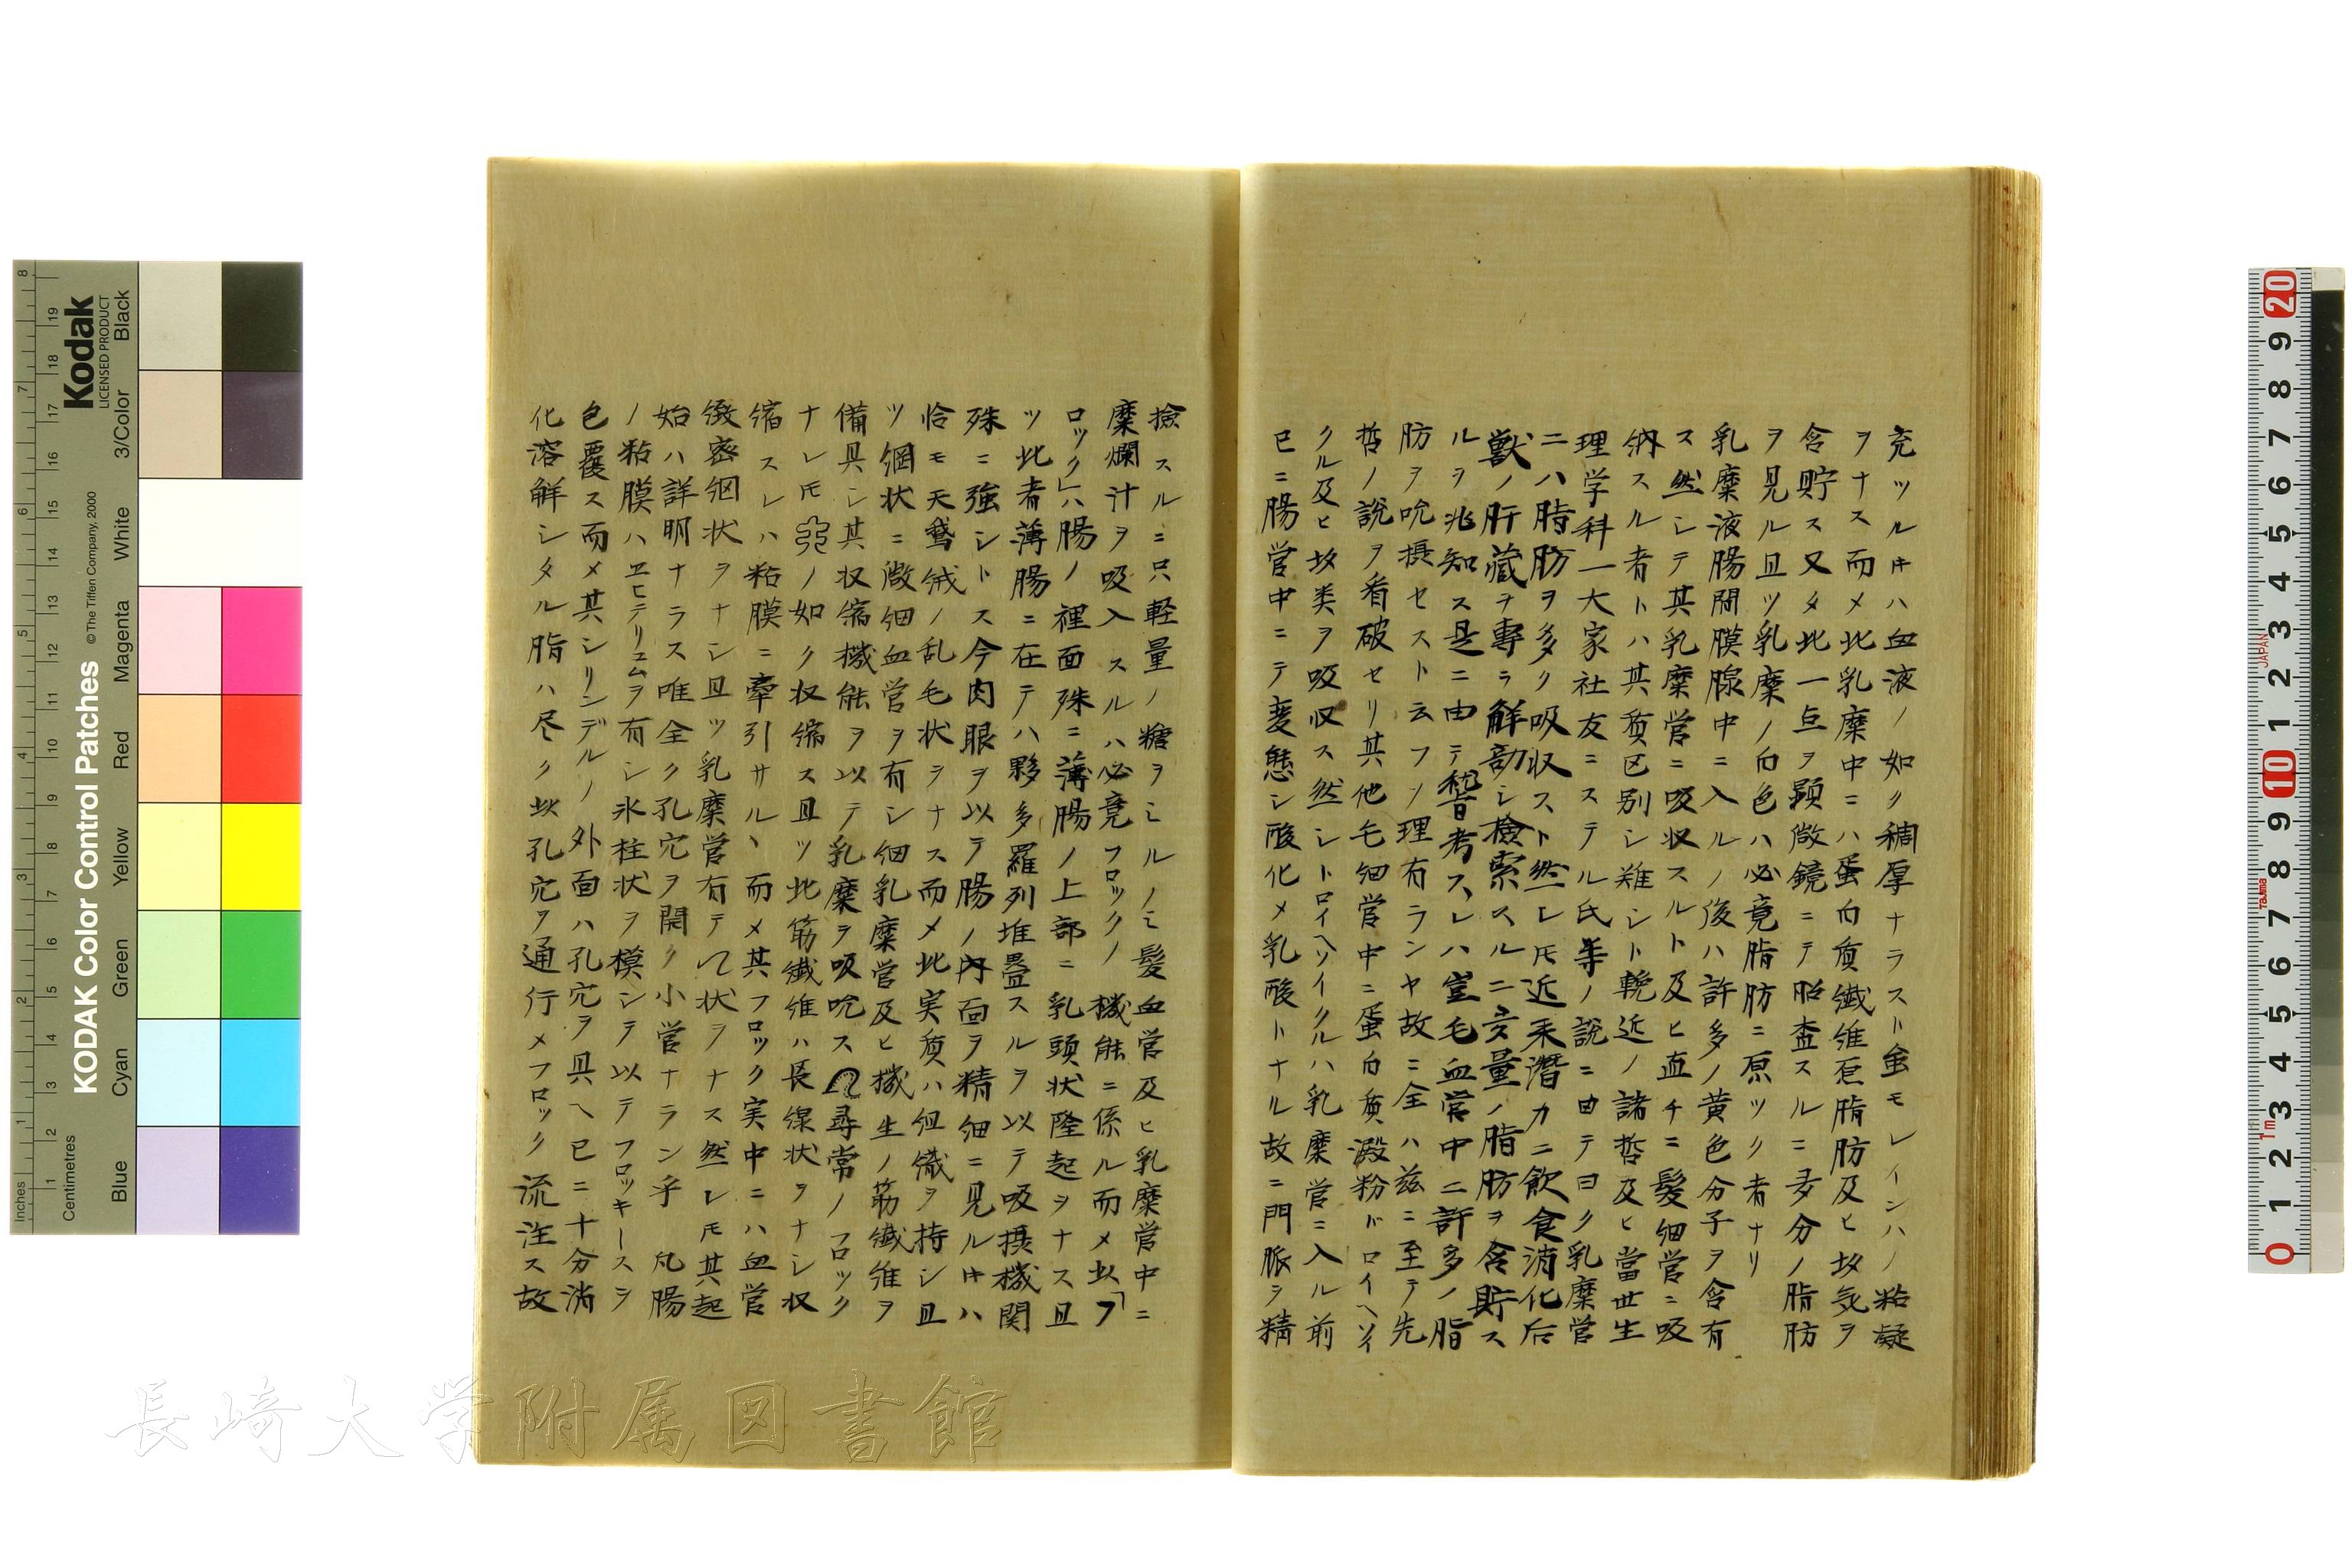 充ツルキハ血液ノ如ク稠厚ナラスト虽モレインハノ粘凝
ヲナス而メ此乳糜中ニハ蛋白質纎維及脂肪及ヒ炊気ヲ
含貯ス又タ此一点ヲ顕微鏡ニテ照査スルニ多分ノ脂肪
ヲ見ル且ツ乳糜ノ白色ハ必竟脂肪ニ原ツク者ナリ
乳糜液腸間膜腺中ニ入ルノ後ハ許多ノ黄色分子ヲ含有
ス然シテ其乳糜管ニ吸収スルト及ヒ直チニ髪細管ニ吸
納スル者トハ其質区別シ難シト輓近ノ諸哲及ヒ當世生
理学科一大家社友ニステル氏等ノ説ニ由テ曰ク乳糜管
ニハ脂肪ヲ多ク吸収スト然レ𪜈近来潛カニ飲食消化后
獣ノ肝蔵ヲ專ラ解剖シ檢索スルニ多量ノ脂肪ヲ含貯ス
ルヲ兆知ス是ニ由テ稽考スレハ豈毛血管中ニ許多ノ脂
肪ヲ吮摂セスト云フノ理有ランヤ故ニ全ハ茲ニ至テ先
哲ノ説ヲ看破セリ其他毛細管中ニ蛋白質澱粉ドロイヘソイ
クル及ヒ炊类ヲ吸収ス然シトロイヘソイクルハ乳糜管ニ入ル前
已ニ腸管中ニテ変態シ酸化メ乳酸トナル故ニ門脈ラ精
撿スルニ只軽量ノ糖ヲミルノミ髪血管及ヒ乳糜管中ニ
糜爛汁ヲ吸入スルハ必竟フロックノ機能ニ係ル而メ炊「フ
ロック」ハ腸ノ裡面殊ニ薄腸ノ上部ニ乳頭状隆起ヲナス且
ツ此者薄腸ニ在テハ夥多羅列堆疊スルヲ以テ吸摂機関
殊ニ強シトス今肉眼ヲ以テ腸ノ内面ヲ精細ニ見ルキハ
恰モ天鵞绒ノ乱毛状ヲナス而メ此実質ハ组織ヲ持シ且
ツ網状ニ微細血管ヲ有シ细乳糜管及ヒ機生ノ筋纎維ヲ
備具シ其収縮機能ヲ以テ乳糜ヲ吸吮スΩ尋常ノフロック
ナレ𪜈ノ如ク収縮ス且ツ此筋纎維ハ長線状ヲナシ収
縮スレハ粘膜ニ牽引サルヽ而メ其フロック実中ニハ血管
緻密網状ヲナシ且ツ乳糜管有テ状ヲナス然レ𪜈其起
始ハ詳明ナラス唯全ク孔穴ヲ開ク小管ナラン乎　凡腸
ノ粘膜ハヱヒテリュムヲ有シ氷柱状ヲ模シテ以テフロッキースラ
包覆ス而メ其シリンデルノ外面ハ孔穴ヲ具ヘ已ニ十分消
化溶解シタル脂ハ尽ク炊孔穴ヲ通行メフロック流注ス故
Kodak
LICENSED PRODUCT
KODAK Color Control Patches
© The Tiffen Company, 2000
Inches
Centimetres
Blue
Cyan
Green
Yellow
Red
Magenta
White
3/Color
Black
JAPAN
長崎大学附属図書館